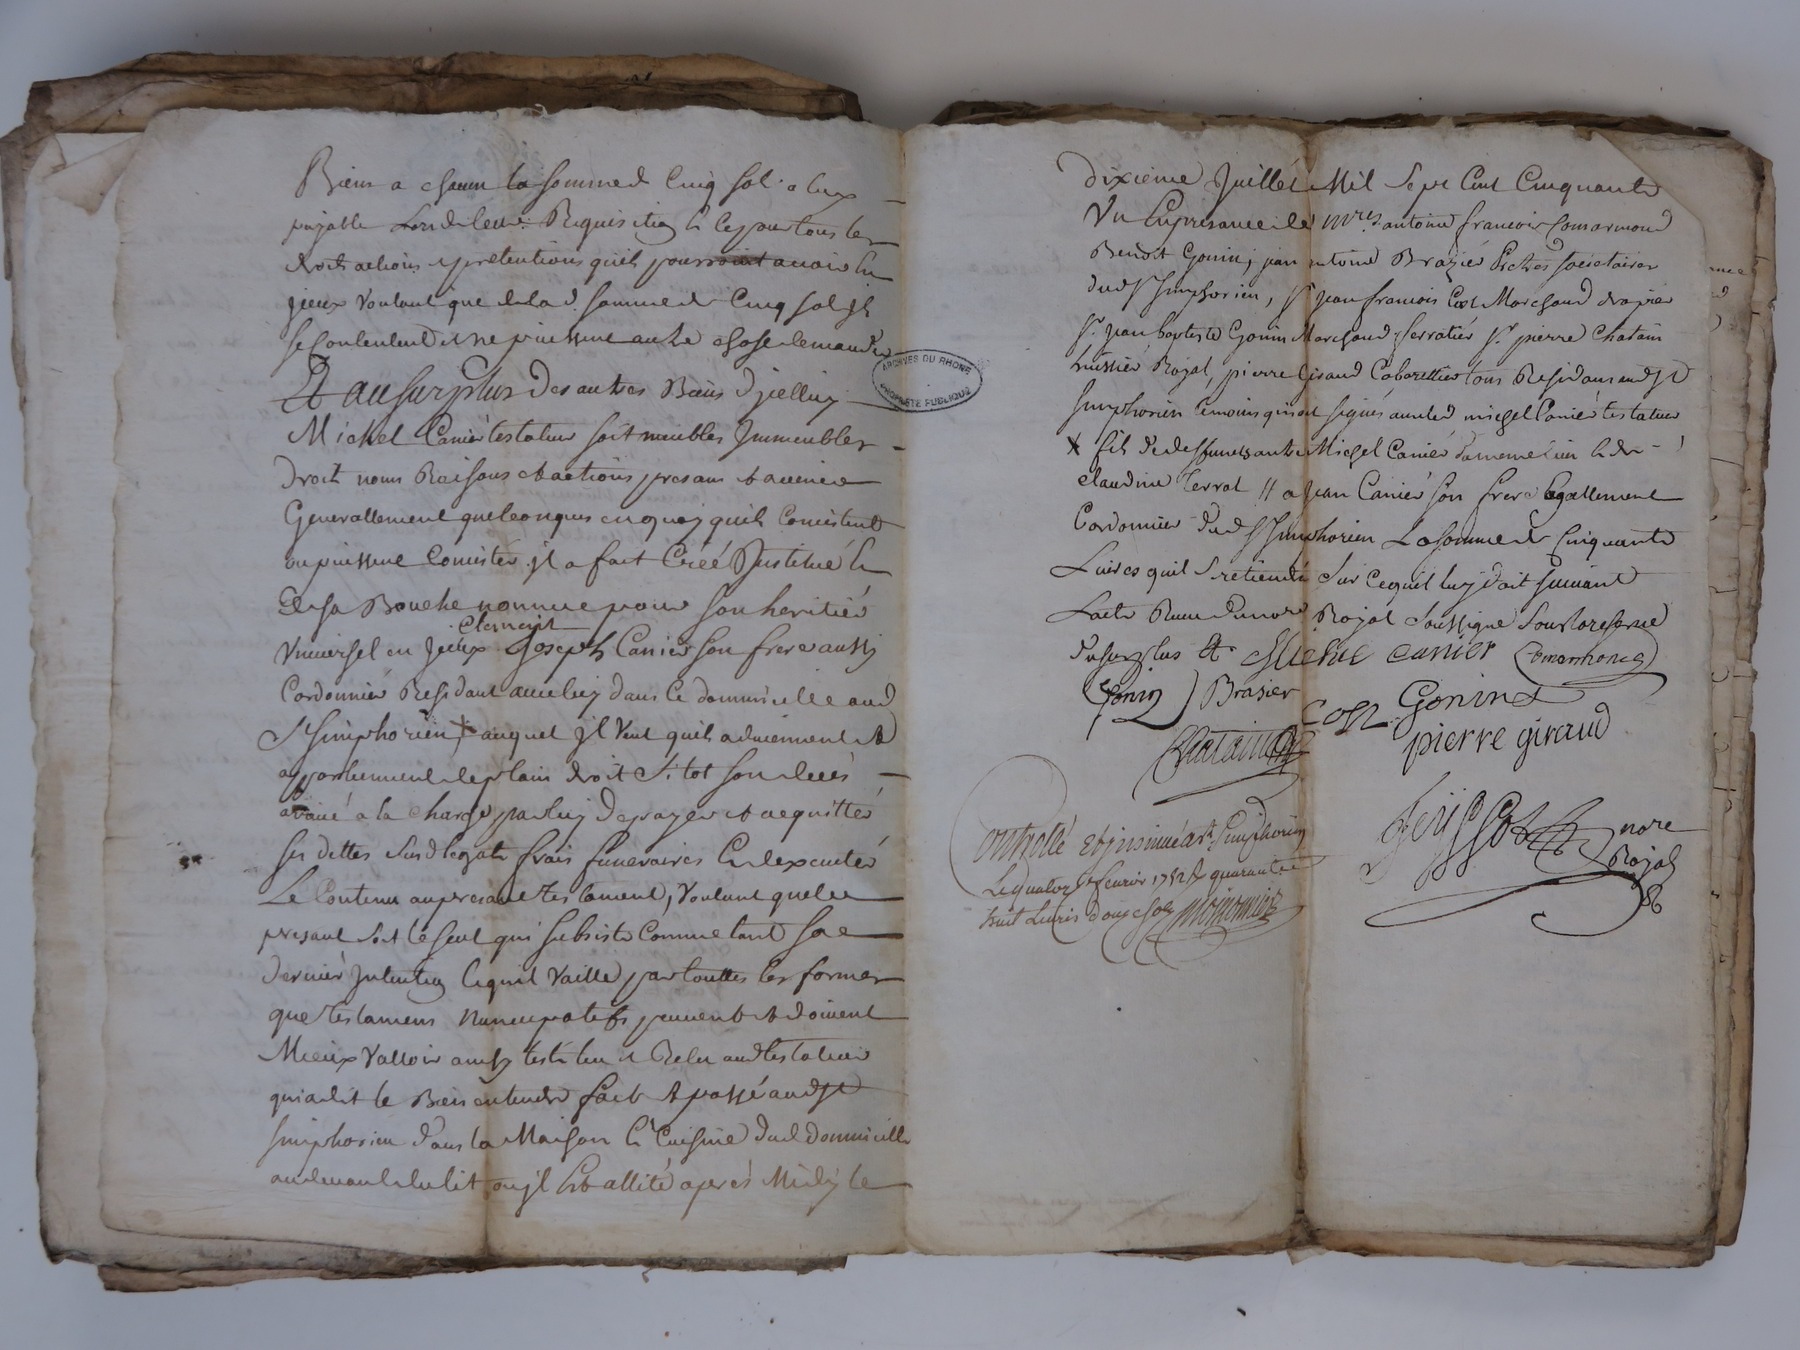 Biens a chacun la somme de Cinq sol. a eux
payable Lors de leur Requisition Et ce pour tous les
droits actions et pretentions quils pourroint avoir En
jceux Voulant que de lad. somme de Cinq sol jls
se Contentent et ne puissent autre chose demander
Et au surplus des autres Biens d'jcelluy
Michel Canier testateur soit meubles Jmmeubles
droits noms Raisons et actions presans et avenir
Generallement quelconques en quoy quils Consistent
ou puissent Consister jl a fait Créé Jnstitué Et
de sa Bouche nommé pour son heritier
Clement
Vniversel en Jceux Joseph Canier son frere aussi
Cordonnier Residant avec luy dans ce dommicille aud
St Simphorien + auquel jl Veut quils adviennent et
appartiennent de plain droit sitot son decès
arrivé a la charge par luy de payer et acquitter
ses dettes susd legats frais funeraires En executer
Le Contenu au presant testament, Voulant que le
presant soit le seul qui subsiste Comme tant sa
derniere Jntention lequel Vaille par touttes les formes
que testamens nuncupatifs peuvent et doivent
Mieux Valloir ainsy testé leu et Relu aud testateur
qui a dit le Bien entendre fait et passé aud St
Simphorien dans la Maison Et Cuisine dud dommicille
au devant du lit ou jl Est allité après Midy le
ARCHIVES DU RHONE
PROPRIETE PUBLIQUE
dixieme Juillet Mil Sept Cent Cinquante
Vn En presance de Mres antoine francois Comarmond
Benoit Gonin, jean antoine Brazier Prêtres societaires
dud St Simphorien, Sr jean francois Cost Marchand drapier
Sr jean baptiste Gonin Marchand ferratier Sr pierre Chatain
huissier Royal, pierre Giraud Cabarettier tous Residans aud St
Simphorien temoins qui ont signés avec led michel Canier testateur
+ fils de deffunct autre Michel Canier Et de
claudine Terrat // a jean Canier son frere Egallement
Cordonnier dud St Simphorien La somme de Cinquante
Livres quil retiendra sur ce quil luy doit suivant
Lacte Receu du nore Royal soussigné sous la reserve
du surplus &. Michel Canier Comarmond
Gonin Brasier Cost Gonin
Chatain pierre giraud
nore
Royal
Controllé Et jnsinué a St Simphorien
Le quatorze fevrier 1752 R quarante
huit Livres douze sols